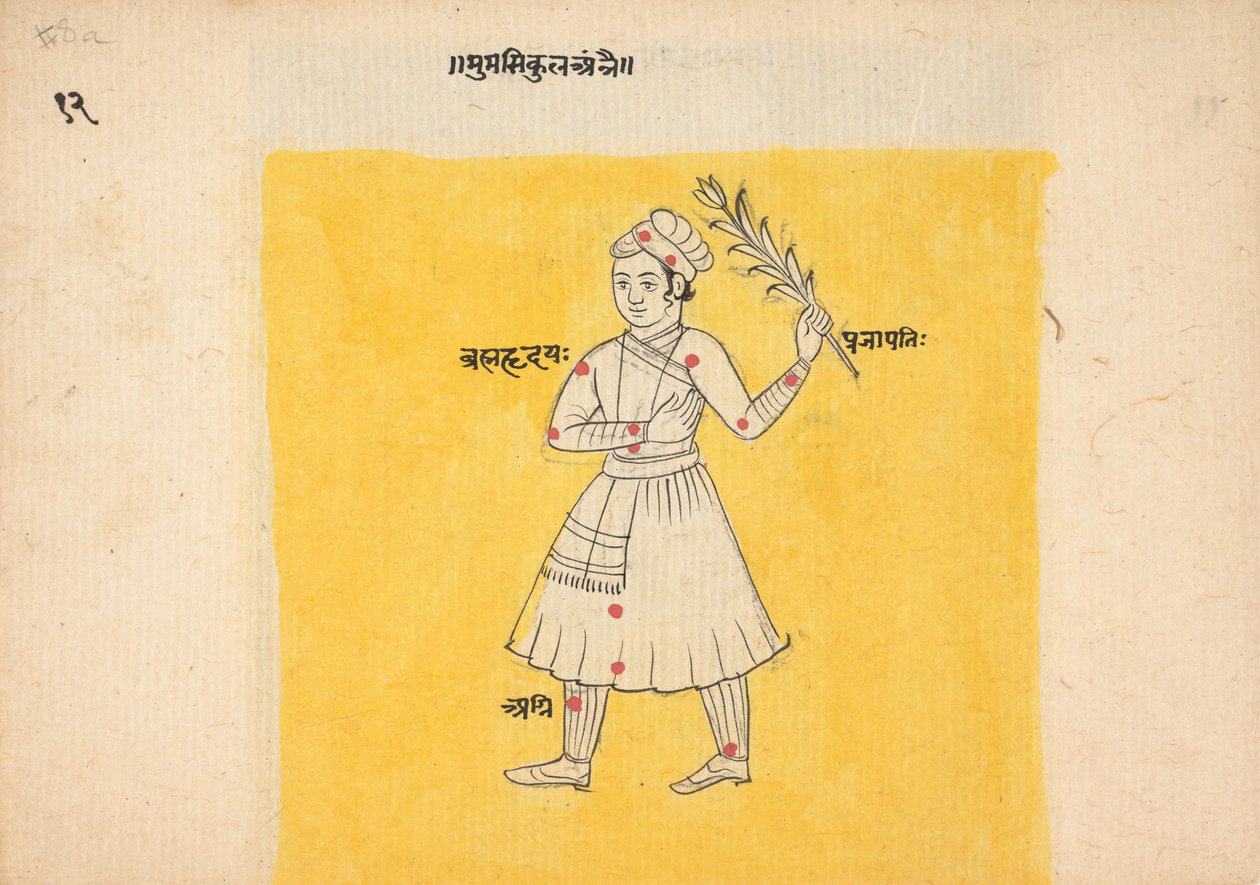 #8a
॥मुमसिकुलअंनै॥
१२
ब्रह्महृदयः
प्रजापतिः
अग्नि